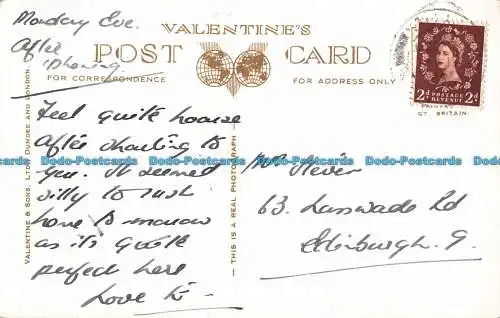 Monday Eve.
After
'phoning
VALENTINE'S
POST CARD
FOR CORRESPONDENCE
FOR ADDRESS ONLY
2d POSTAGE REVENUE 2d
PRINTED IN
GT. BRITAIN.
VALENTINE & SONS, LTD., DUNDEE AND LONDON.
THIS IS A REAL PHOTOGRAPH
Feel quite hoarse
after shouting to
you. It seemed
silly to rush
home to-morrow
as its quite
perfect here
Love
63. Lasswade Rd
Edinburgh. 9.
Dodo-Postcards Dodo-Postcards Dodo-Postcards Dodo-Postcards Dodo-Postcards Dodo-Postcards